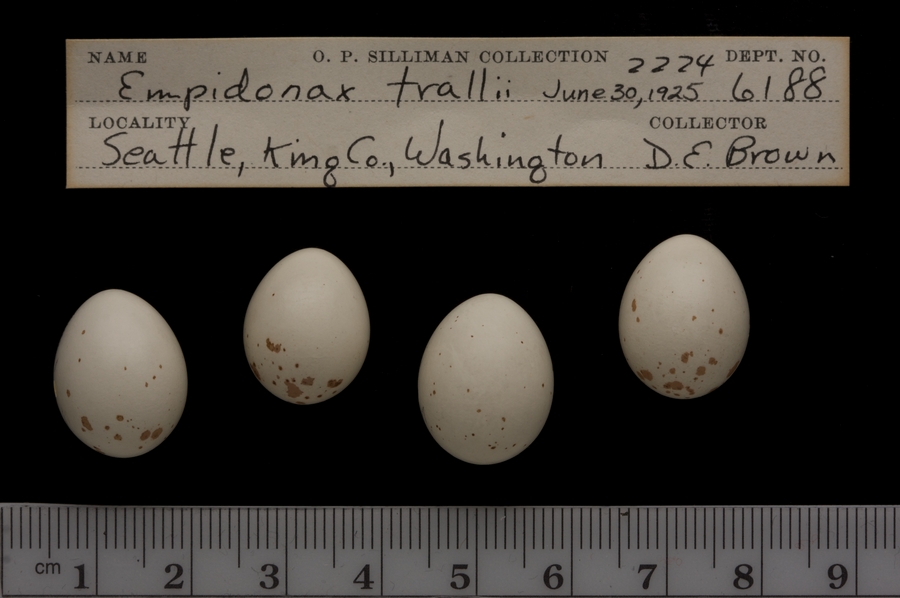 NAME O. P. SILLIMAN COLLECTION 2224 DEPT. NO.
Empidonax trallii June 30, 1925 6188
LOCALITY COLLECTOR
Seattle, King Co., Washington D. E. Brown
cm 1 2 3 4 5 6 7 8 9